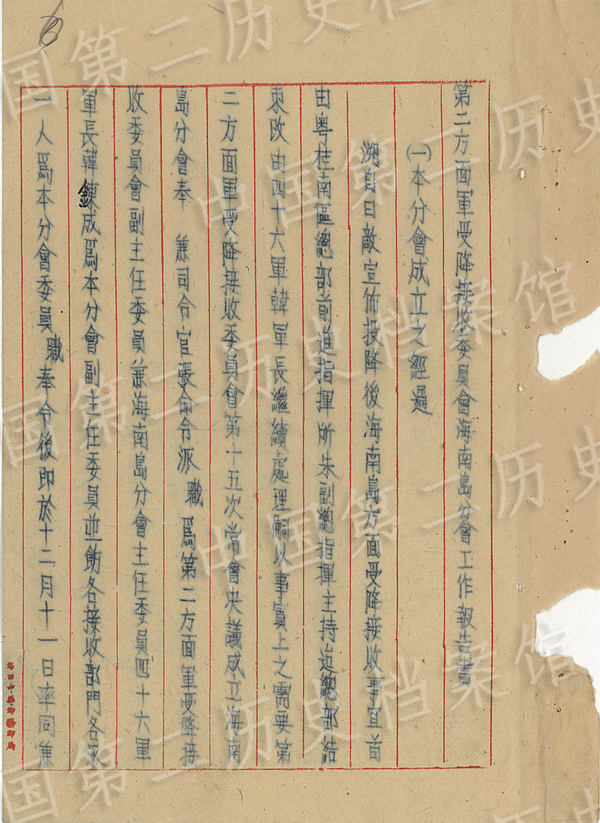 第二方面軍受降接收委員會海南島分會工作報告書
(一)本分會成立之經過
溯自日敵宣佈投降後海南島方面受降接收事宜首
由粵桂南區總部前進指揮所朱副總指揮主持迨總部結
束改由四十六軍韓軍長繼續處理嗣以事實上之需要第
二方面軍受降接收委員會第十五次常會決議成立海南
島分會奉 兼司令官張命令派職為第二方面軍受降接
收委員會副主任委員兼海南島分會主任委員四十六軍
軍長韓鍊成為本分會副主任委員並飭各接收部門各派
一人為本分會委員職奉令後即於十二月十一日率同兼
中国第二历史档案馆